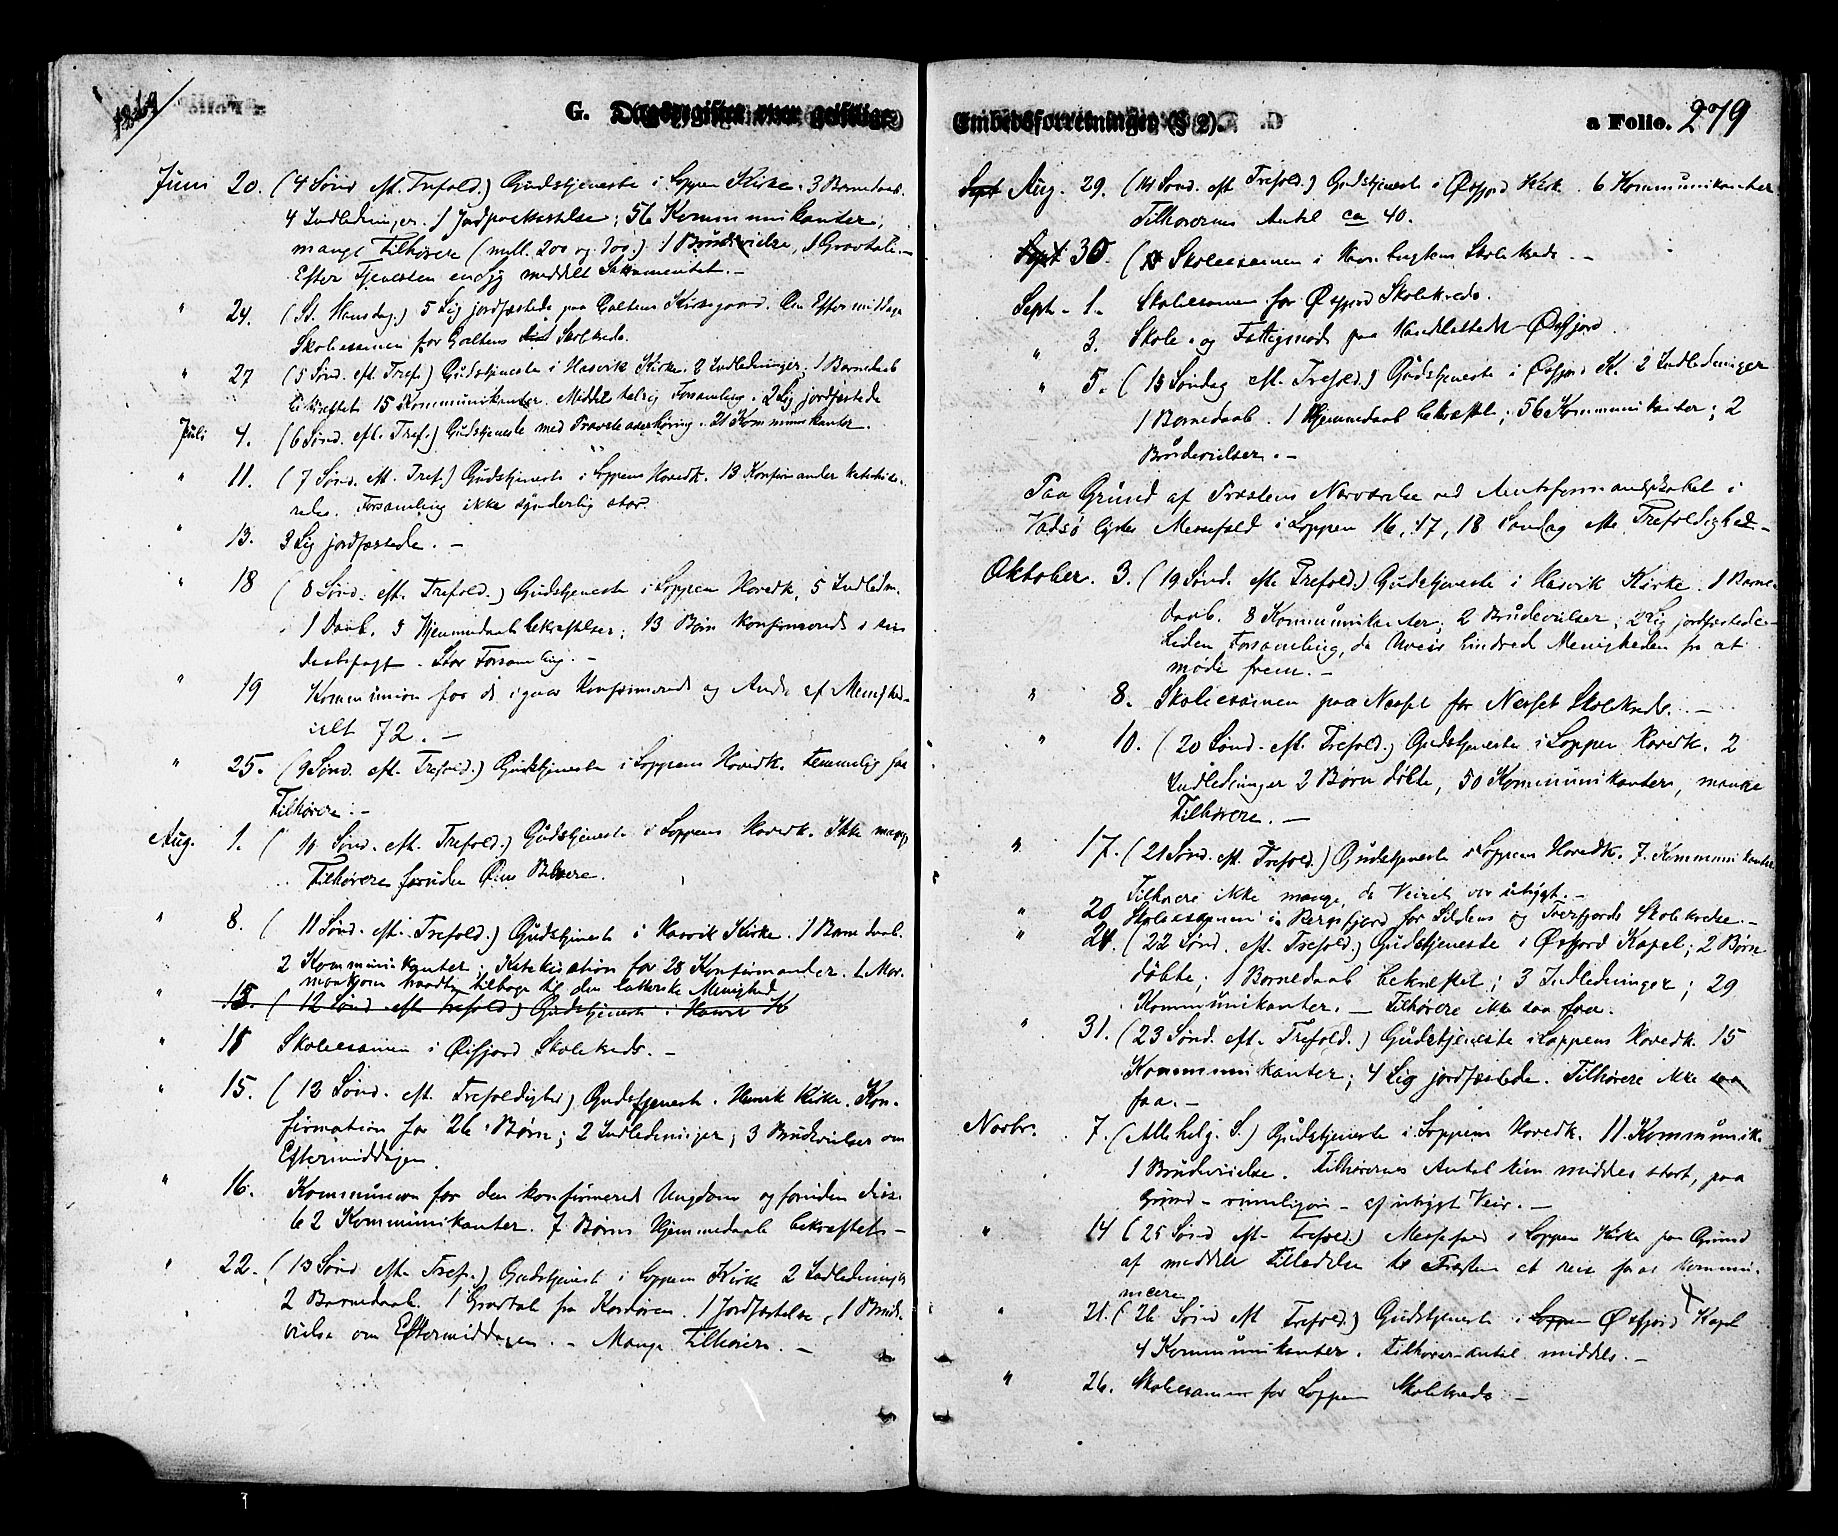 G. Dagsregister over geistlige
Juni 20. (4 Sønd. eft. Trefold.) Gudstjeneste i Loppen Kirke. 3 Barnedaab.
4 Indledninger. 1 Jordpaakastelse; 56 Kommunikanter;
mange Tilhørere (mell. 200 og 300.) 1 Brudevielse, 1 Gravtale. —
Efter Tjenesten en Syg meddelt Sakramentet. —
" 24. (St. Hansdag.) 5 Lig jordfæstede paa Galtens Kirkegaard. Om Eftermiddagen
Skoleexamen for Galtens Skolkreds.
" 27 (5 Sønd. eft. Tref.) Gudstjeneste i Hasvik Kirke. 2 Indledninger; 1 Barnedaab
bekræftet 15 Kommunikanter. Middels talrig Forsamling. 2 Lig jordfæstede
Juli 4. (6 Sønd. eft. Tref.) Gudstjeneste med 21 Kommunikanter.
" 11. (7 Sønd. eft. Tref.) Gudstjeneste i Loppens Hovedk. 13 Konfirmander katekise-
redes. Forsamling ikke synderlig stor.
" 13. 3 Lig jordfæstede. —
" 18 (8 Sønd. eft. Trefold.) Gudstjeneste i Loppen Hovedk. 5 Indledn.
1 Daab. 3 Hjemmedaabsbekræftelser; 13 Børn konfirmerede i sin
Daabspagt. Stor Forsamling. —
" 19 Kommunion for de igaar Konfirmerede og Andre af Menighed
ialt 72. —
" 25. (9 Sønd. eft. Trefold.) Gudstjeneste i Loppens Hovedk. temmelig faa
Tilhørere. —
Aug. 1. (10 Sønd. eft. Trefold.) Gudstjeneste i Loppens Hovedk. Ikke mange
Tilhørere foruden Øens Beboere.
" 8. (11 Sønd. eft. Trefold.) Gudstjeneste i Hasvik Kirke. 1 Barnedaab.
2 Kommunikanter. Katekisation for 28 Konfirmander. 1 Mor-
tilbage til den lutherske Menighed
" 15. (12 Sønd. eft. Trefold) Gudstjeneste i Hasvik K
" 11 Skoleexamen i Øxfjord Skolekreds. —
" 15. (12 Sønd. eft. Trefoldighed) Gudstjeneste i Hasvik Kirke. Kon-
firmation for 26 Børn; 2 Indledninger; 3 Brudevielser om
Eftermiddagen.
" 16. Kommunion for den konfirmerede Ungdom og foruden disse
62 Kommunikanter. 7 Børns Hjemmedaab bekræftet —
" 22. (13 Sønd. eft. Tref.) Gudstjeneste i Loppen Kirke 2 Indledninger
2 Barnedaab. 1 Gravtale fra Kordøren. 1 Jordfæstelse, 1 Brude-
vielse om Eftermiddagen. — Mange Tilhørere. —
Embedsforretninger (§ 2).
a Folio. 279
Sept Aug. 29. (14 Sønd. eft Trefold.) Gudstjeneste i Øxfjord Kirk. 6 Kommunikanter
Tilhørernes Antal ca 40.
Sept 30. Skoleexamen i Skolekreds. —
Sept. 1. Skoleexamen for Øxfjord Skolekreds.
" 3. Skole- og Fattigmøde paa Handelsstedet Øxfjord.
" 5. (15 Søndag eft. Trefold.) Gudstjeneste i Øxfjord K. 2 Indledninger
1 Barnedaab. 1 Hjemmedaab bekræftet; 56 Kommunikanter; 2
Brudevielser. —
Paa Grund af Præstens Nærværelse ved Amtsformandskabet i
Vadsø lystes Messefald i Loppen 16, 17, 18 Søndag efter Trefoldighed —
Oktober. 3. (19 Sønd. efter Trefold.) Gudstjeneste i Hasvik Kirke. 1 Barne-
daab. 8 Kommunikanter; 2 Brudevielser; 2 Lig jordfæstede
Liden Forsamling, da Uveir hindrede Menigheden fra at
møde frem. —
" 8. Skoleexamen paa Næsset for Nesset Skolekreds. —
" 10. (20 Sønd. eft. Trefold.) Gudstjeneste i Loppen Hovedk. 2
Indledninger 2 Børn døbte, 50 Kommunikanter, mange
Tilhørere. —
" 17. (21 Sønd. eft. Trefold.) Gudstjeneste i Loppens Hovedk. 7. Kommunikanter
Tilhørere ikke mange, da Veiret var utrygt. —
" 20 Skoleexamen i Bergsfjord for Sildens og Skolekredse. —
" 24. (22 Sønd. eft. Trefold.) Gudstjeneste i Øxfjord Kapel; 2 Børn
døbte; 1 Barnedaab bekræftet; 3 Indledninger; 29
Kommunikanter. — Tilhørere ikke saa faa.
" 31. (23 Sønd. eft. Trefold.) Gudstjeneste i Loppens Hovedk. 15
Kommunikanter; 4 Lig jordfæstede. Tilhørere ikke saa
faa. —
Novbr. 7. (Allehelg. S.) Gudstjeneste i Loppens Hovedk. 11. Kommunik.
1 Brudevielse. Tilhørernes Antal kun middels stort, paa
Grund — rimeligvis — af utrygt Veir. —
" 14 (25 Sønd eft. trefold.) Messefald i Loppen Kirke paa Grund
af meddelt Tilladelse til Præsten at reise for at kommu-
nicere
" 21. (26 Sønd eft Trefold.) Gudstjeneste i Loppen Øxfjord Kapel
4 Kommunikanter. Tilhører-Antal middels. —
" 26. Skoleexamen for Loppen Skolekreds. —